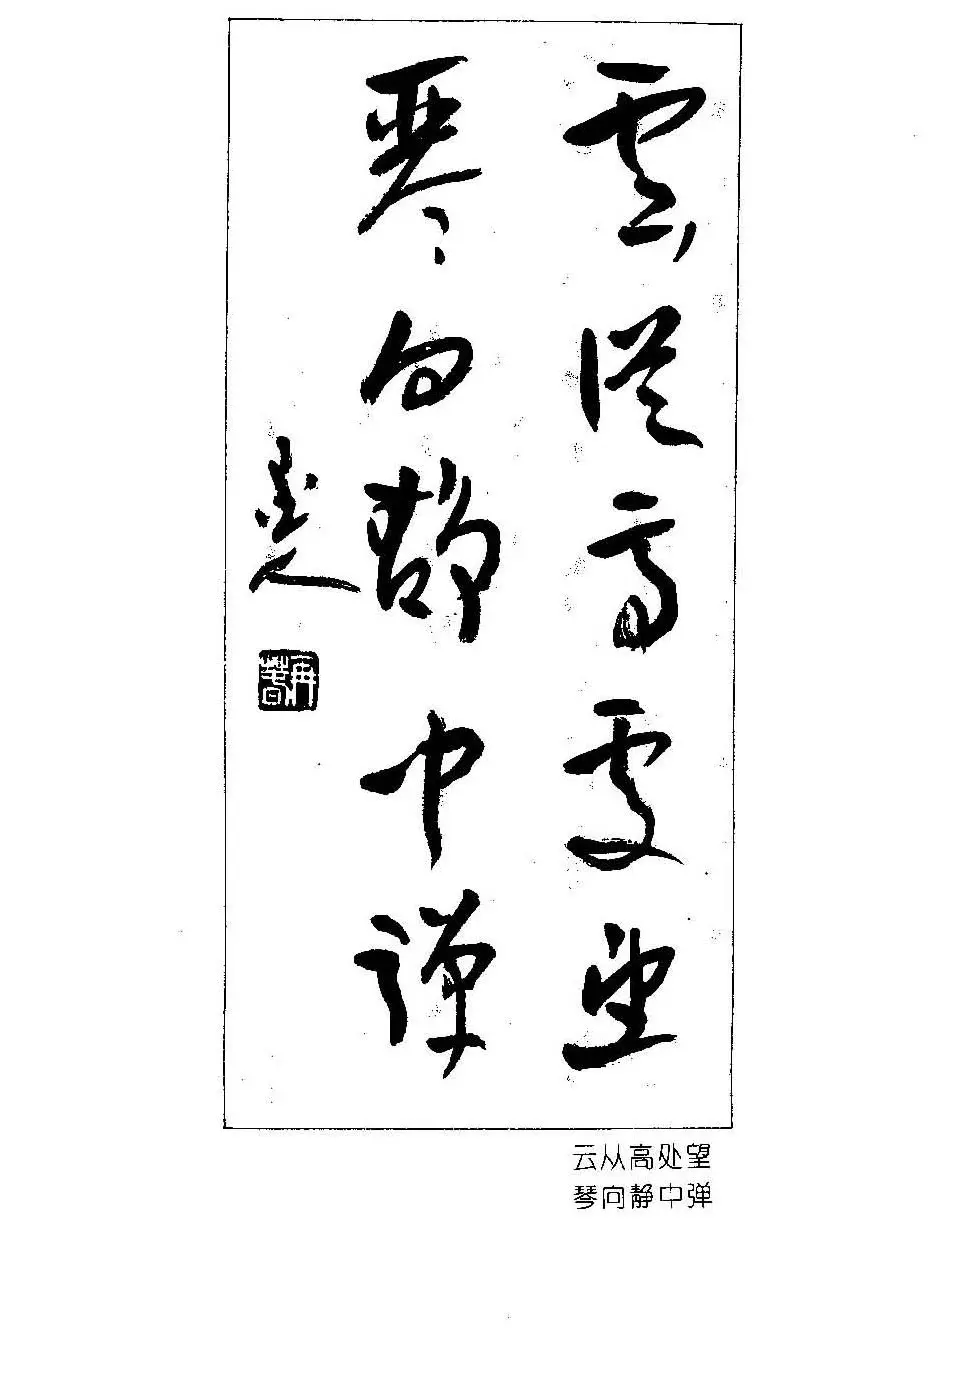 雲從高處望
琴向静中彈
云从高处望
琴向静中弹